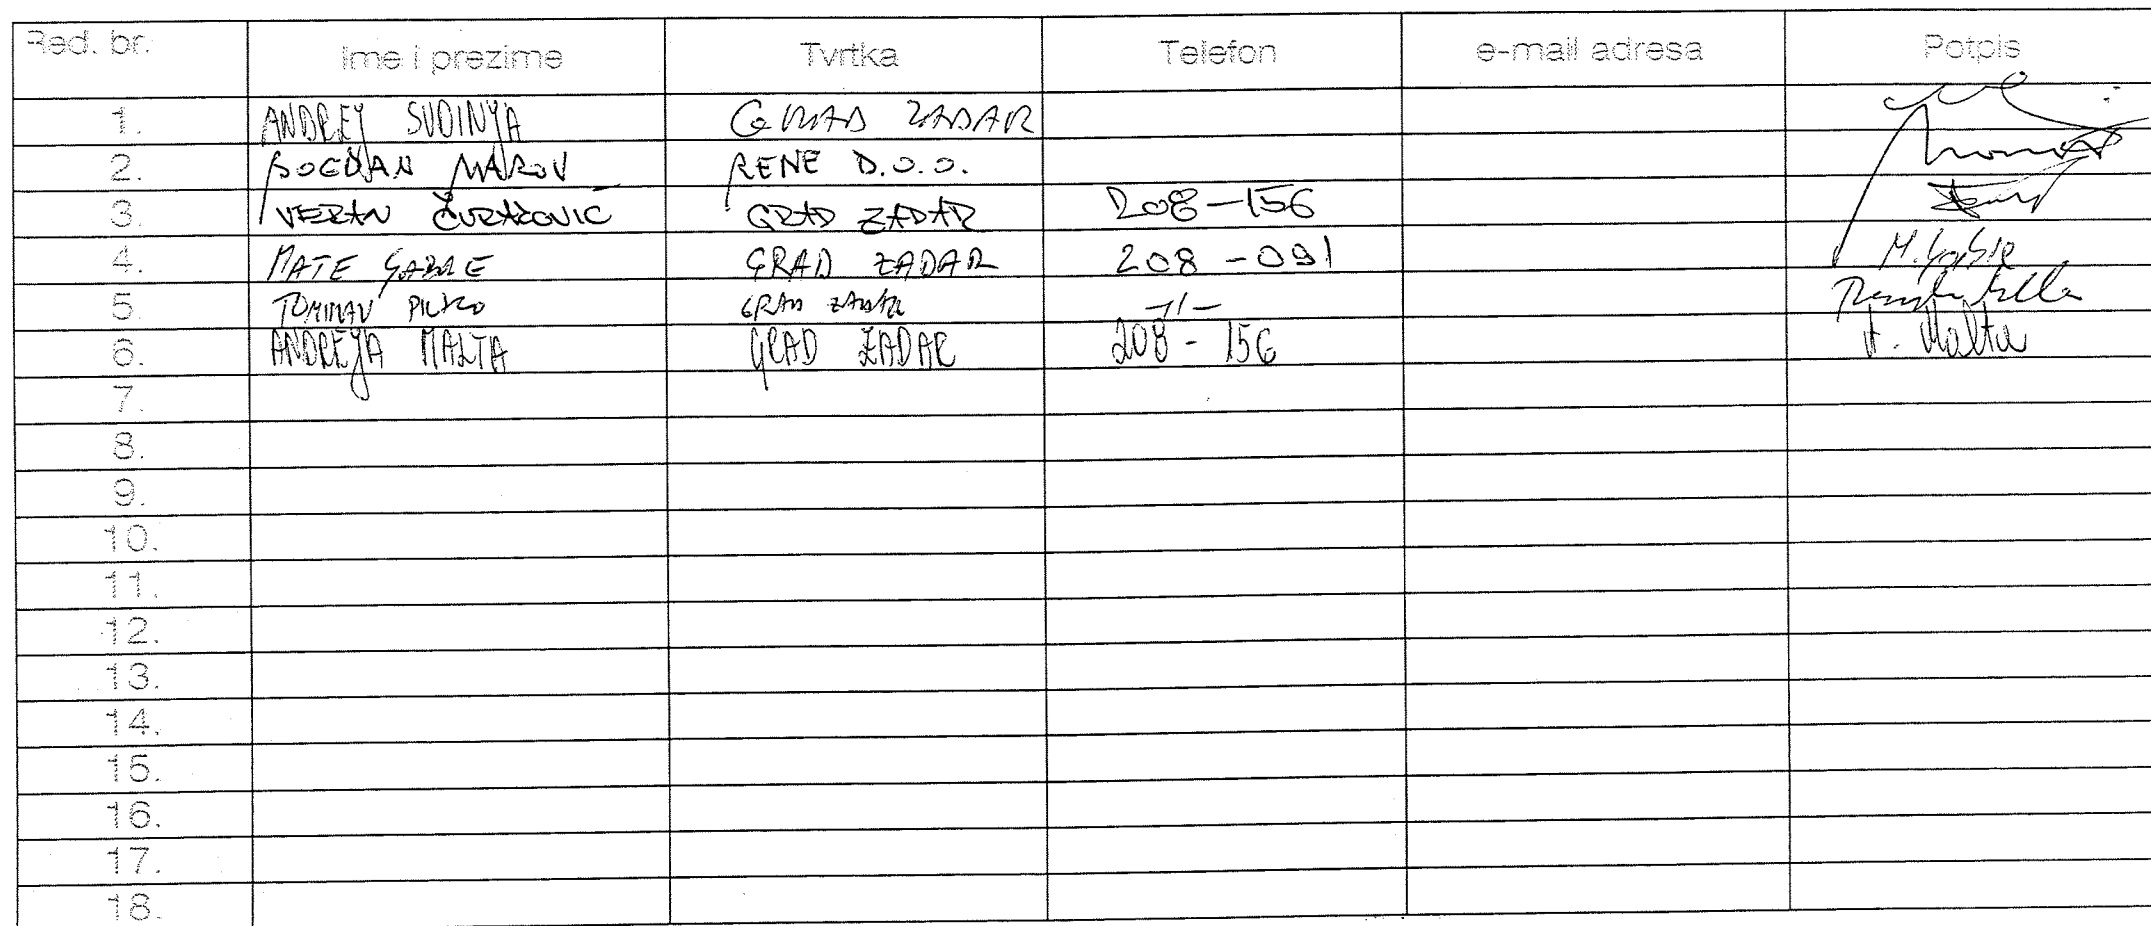 Red. br. Ime i prezime Tvrtka Telefon e-mail adresa Potpis
1. ANDREJ GRAD ZADAR
2. BOGDAN MAROV RENE D.O.O.
3. VERAN GRAD ZADAR 208-156
4. MATE GABRE GRAD ZADAR 208-091
5. GRAD ZADAR -//-
6. ANDREJA MALTA GRAD ZADAR 208-156 A. Malta
7.
8.
9.
10.
11.
12.
13.
14.
15.
16.
17.
18.